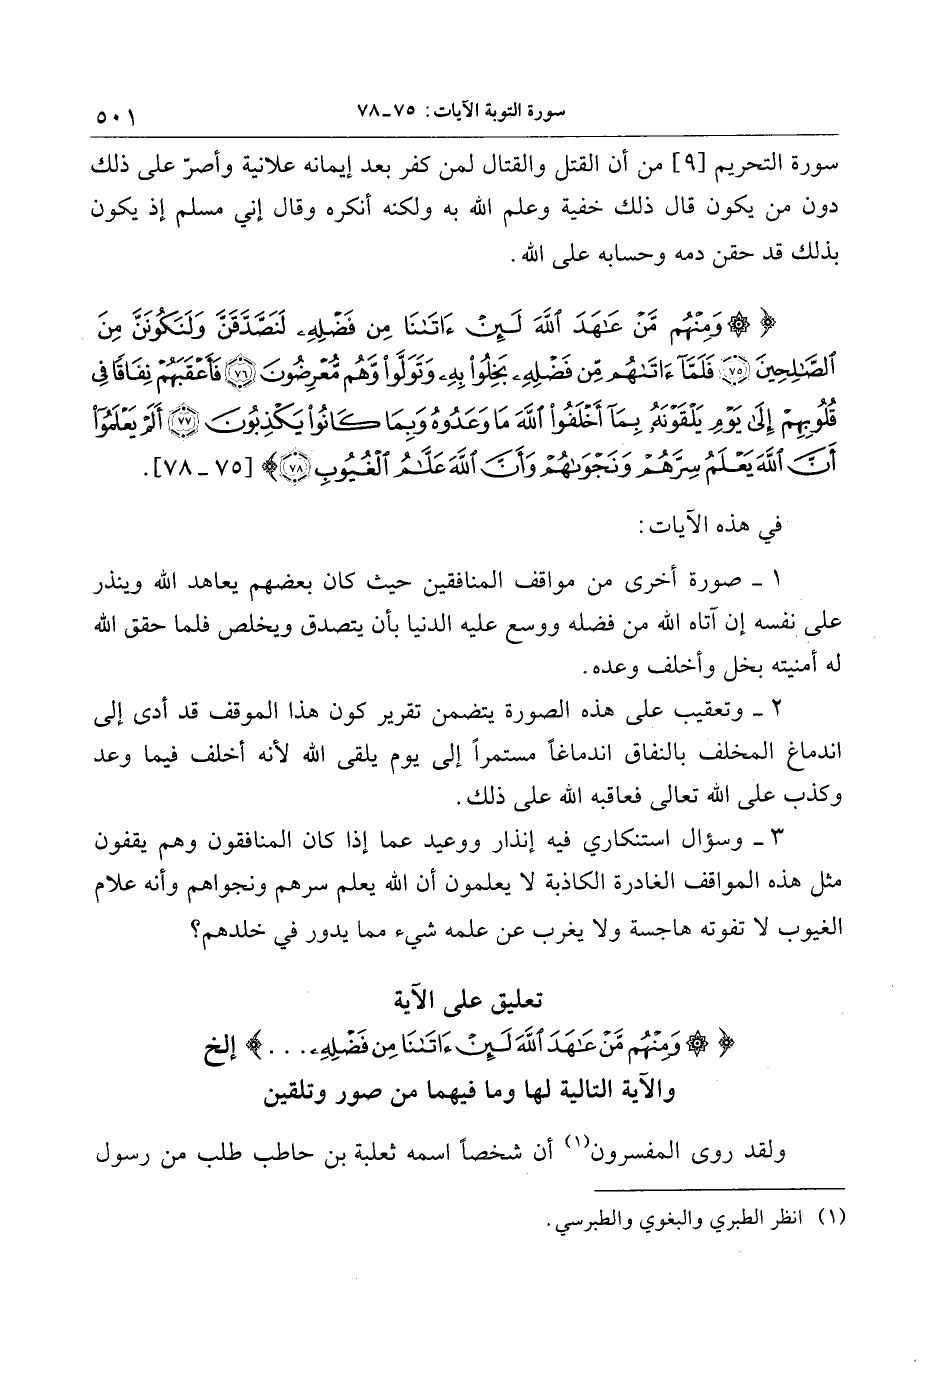 سورة التوبة الآيات: ٧٥ـ٧٨ ٥٠١
سورة التحريم [٩] من أن القتل والقتال لمن كفر بعد إيمانه علانية وأصرّ على ذلك
دون من يكون قال ذلك خفية وعلم الله به ولكنه أنكره وقال إني مسلم إذ يكون
بذلك قد حقن دمه وحسابه على الله.
﴿ ۞ وَمِنْهُم مَّنْ عَٰهَدَ ٱللَّهَ لَئِنْ ءَاتَىٰنَا مِن فَضْلِهِۦ لَنَصَّدَّقَنَّ وَلَنَكُونَنَّ مِنَ
ٱلصَّٰلِحِينَ ۝٧٥ فَلَمَّآ ءَاتَىٰهُم مِّن فَضْلِهِۦ بَخِلُوا۟ بِهِۦ وَتَوَلَّوا۟ وَّهُم مُّعْرِضُونَ ۝٧٦ فَأَعْقَبَهُمْ نِفَاقًا فِى
قُلُوبِهِمْ إِلَىٰ يَوْمِ يَلْقَوْنَهُۥ بِمَآ أَخْلَفُوا۟ ٱللَّهَ مَا وَعَدُوهُ وَبِمَا كَانُوا۟ يَكْذِبُونَ ۝٧٧ أَلَمْ يَعْلَمُوٓا۟
أَنَّ ٱللَّهَ يَعْلَمُ سِرَّهُمْ وَنَجْوَىٰهُمْ وَأَنَّ ٱللَّهَ عَلَّٰمُ ٱلْغُيُوبِ ۝٧٨﴾ [٧٥ ـ ٧٨].
في هذه الآيات:
١ ـ صورة أخرى من مواقف المنافقين حيث كان بعضهم يعاهد الله وينذر
على نفسه إن آتاه الله من فضله ووسع عليه الدنيا بأن يتصدق ويخلص فلما حقق الله
له أمنيته بخل وأخلف وعده.
٢ ـ وتعقيب على هذه الصورة يتضمن تقرير كون هذا الموقف قد أدى إلى
اندماغ المخلف بالنفاق اندماغاً مستمراً إلى يوم يلقى الله لأنه أخلف فيما وعد
وكذب على الله تعالى فعاقبه الله على ذلك.
٣ ـ وسؤال استنكاري فيه إنذار ووعيد عما إذا كان المنافقون وهم يقفون
مثل هذه المواقف الغادرة الكاذبة لا يعلمون أن الله يعلم سرهم ونجواهم وأنه علام
الغيوب لا تفوته هاجسة ولا يغرب عن علمه شيء مما يدور في خلدهم؟
تعليق على الآية
﴿ ۞ وَمِنْهُم مَّنْ عَٰهَدَ ٱللَّهَ لَئِنْ ءَاتَىٰنَا مِن فَضْلِهِۦ...﴾ إلخ
والآية التالية لها وما فيهما من صور وتلقين
ولقد روى المفسرون(١) أن شخصاً اسمه ثعلبة بن حاطب طلب من رسول
(١) انظر الطبري والبغوي والطبرسي.